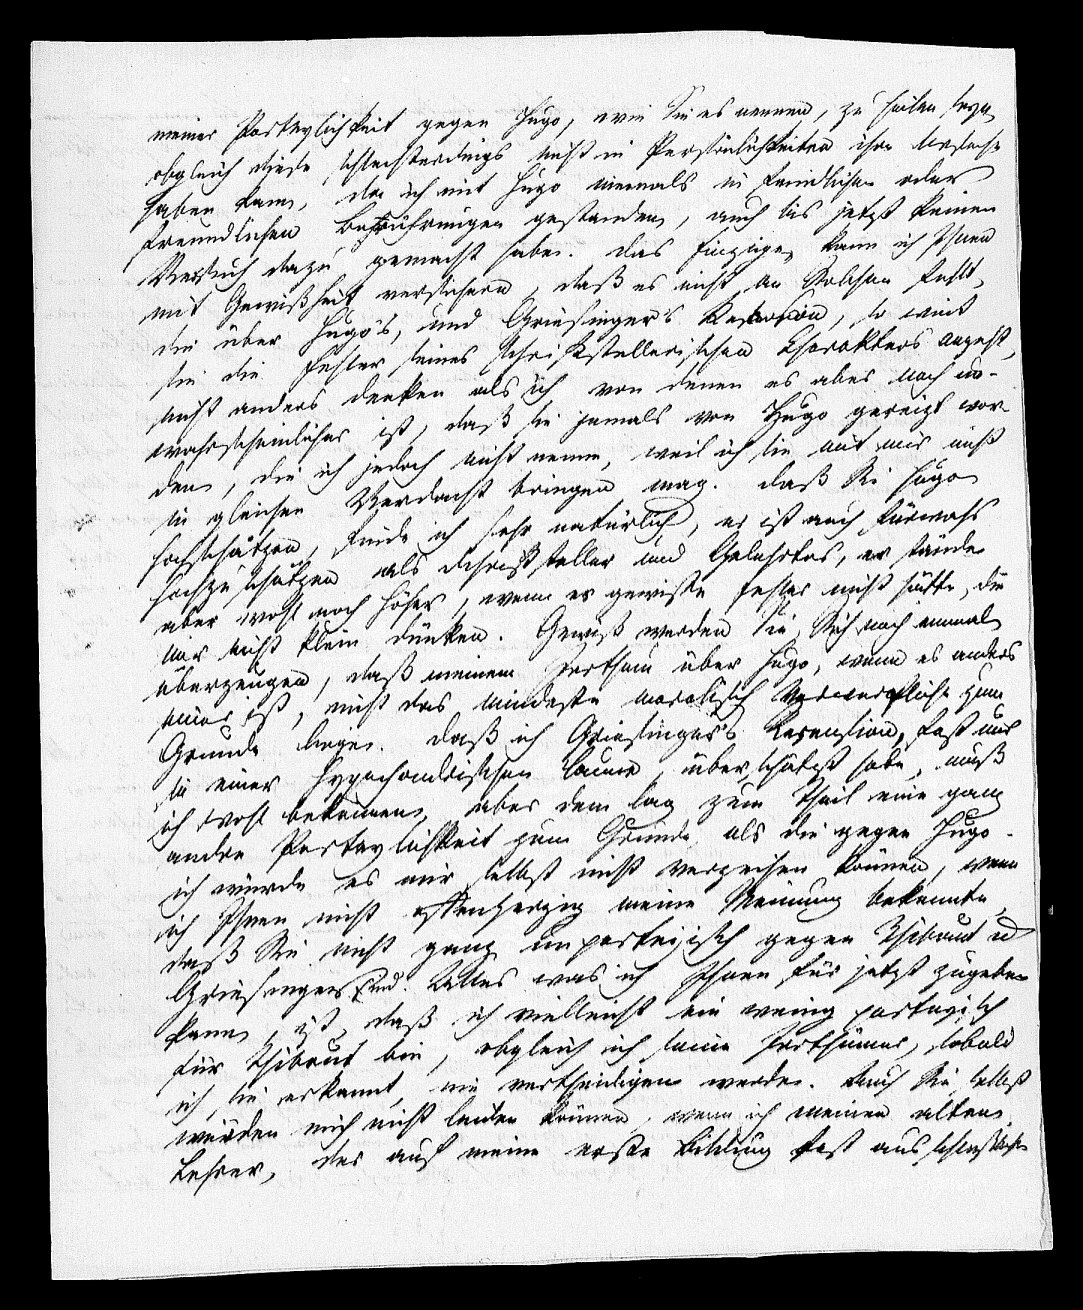 meiner Parteylichkeit gegen Hugo, wie Sie es nennen, zu heilen seyn,
obgleich diese schlechterdings nicht in Persönlichkeiten ihre Ursache
haben kann, da ich mit Hugo niemals in feindlichen oder
freundlichen Berührungen gestanden, auch bis jetzt keinen
Versuch dazu gemacht habe. Das Einzige kann ich Ihnen
mit Gewißheit versichern, daß es nicht an Solchen fehlt,
die über Hugo's, und Griesinger's Recension, so weit
sie die Fehler seines schriftstellerischen Charakters angeht,
nicht anders denken als ich von denen es aber noch un-
wahrscheinlicher ist, daß sie jemals von Hugo gereizt wor-
den, die ich jedoch nicht nenne, weil ich sie mit mir nicht
in gleichen Verdacht bringen mag. Daß Sie Hugo
hochschätzen, finde ich sehr natürlich, er ist auch fürwahr
hochzuschätzen als Schriftsteller und Gelehrter, er stände
aber wohl noch höher, wenn er gewisse Fehler nicht hätte, die
mir nicht klein dünken. Gewiß werden Sie Sich noch einmal
überzeugen, daß meinem Irrthum über Hugo, wenn es anders
einer ist, nicht das mindeste moralisch Verwerfliche zum
Grunde liege. Daß ich Griesinger's Recension, fast nur
in einer hypochondrischen Laune, überschätzt habe, muß
ich wohl bekennen, aber dem lag zum Theil eine ganz
andre Parteylichkeit zum Grunde als die gegen Hugo.
ich würde es mir selbst nicht verzeihen können, wenn
ich Ihnen nicht offenherzig meine Meinung bekennte,
daß Sie nicht ganz unparteyisch gegen Thibaut u
Griesinger sind. Alles was ich Ihnen für jetzt zugeben
kann, ist, daß ich vielleicht ein wenig parteyisch
für Thibaut bin, obgleich ich seine Irrthümer, sobald
ich sie erkannt, nie vertheidigen werde. Auch Sie selbst
würden mich nicht leiden können, wenn ich meinen alten
Lehrer, der auf meine erste Bildung fast ausschließlich